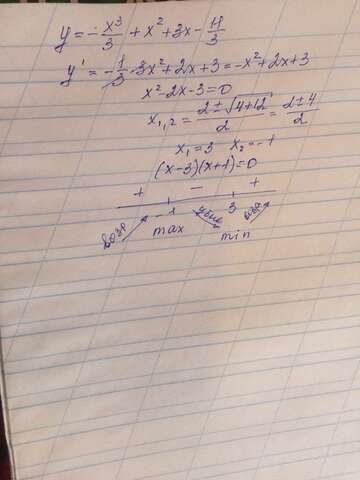 y = -x³/3 + x² + 3x - 11/3
y' = -1/3 · 3x² + 2x + 3 = -x² + 2x + 3
x² - 2x - 3 = 0
x₁,₂ = (2 ± √(4+12))/2 = (2 ± 4)/2
x₁ = 3 x₂ = -1
(x-3)(x+1) = 0
+ - +
возр -1 убыв 3 возр
max min